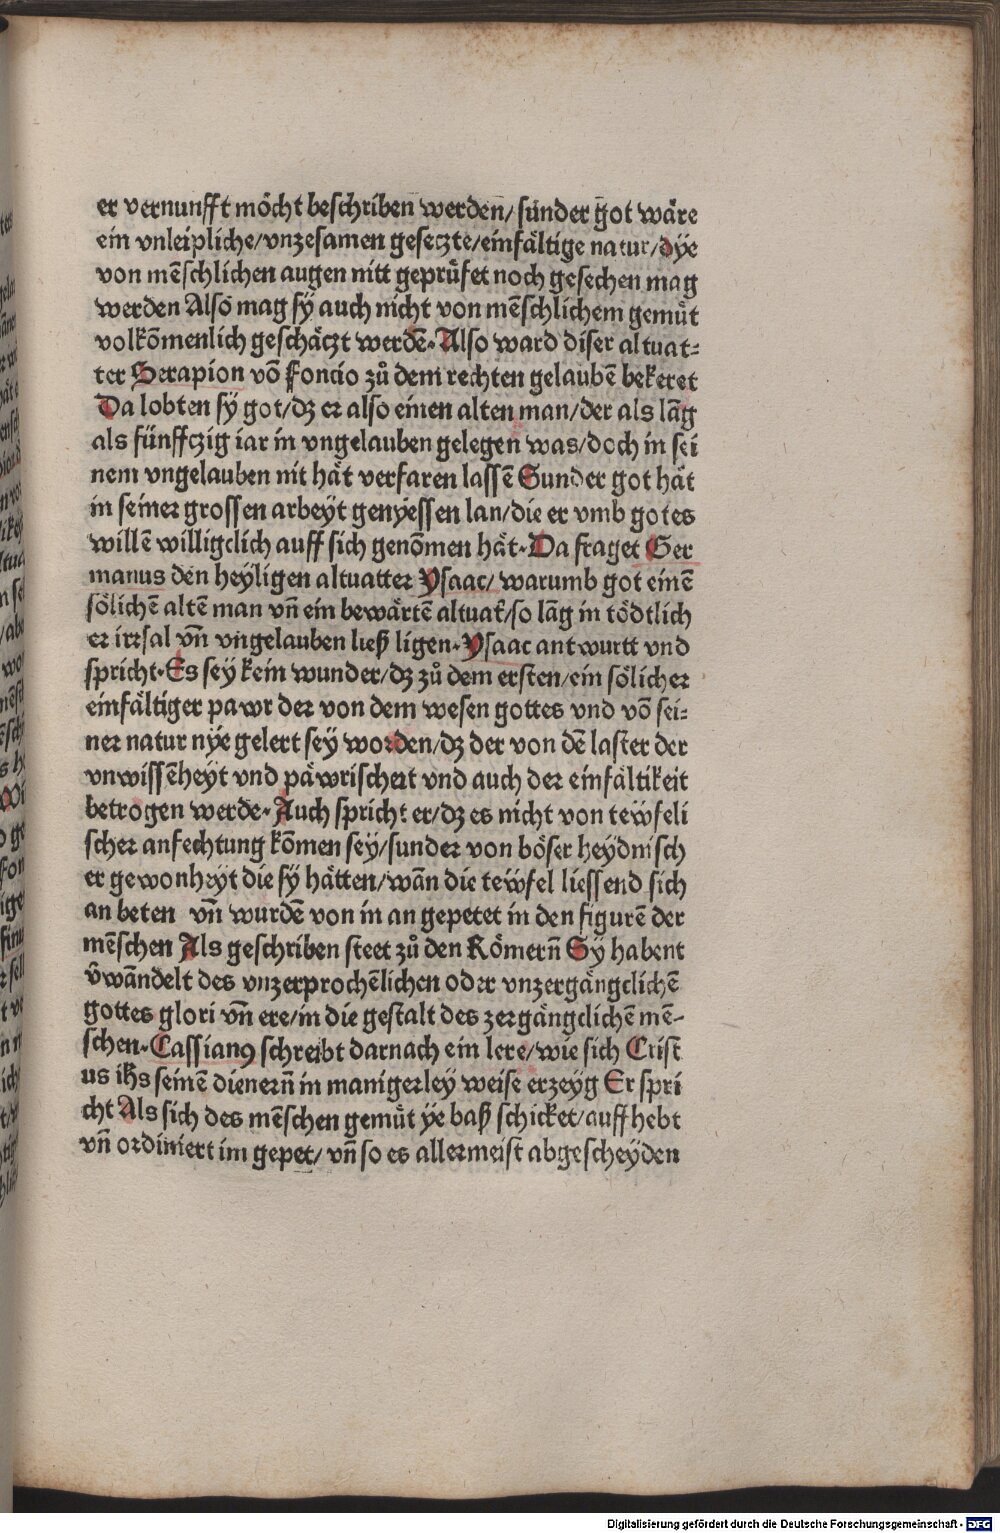 er vernunfft möcht beschriben werden/ sünder got wäre
ein vnleipliche/vnzesamen gesetzte/einfältige natur/dÿe
von mēschlichen augen nitt geprüfet noch gesechen mag
werden Alsō mag sÿ auch nicht von mēschlichem gemüt
volkōmenlich geschäczt werdē. Also ward diser altuat⸗
ter Serapion vō Foncio zů dem rechten gelaubē bekeret
Da lobten sÿ got/dʒ er also einen alten man/der als lāg
als fünffczig iar in vngelauben gelegen was/doch in sei
nem vngelauben nit hät verfaren lassē Sunder got hät
in seiner grossen arbeÿt genyessen lan/die er vmb gotes
willē willigclich auff sich genōmen hät. Da fraget Ger
manus den heÿligen altuatter Ysaac/ warumb got einē
sölichē altē man vn̄ ein bewärtē altuat̄/so lāg in tödtlich
er irrsal vn̄ vngelauben ließ ligen. Ysaac antwurtt vnd
spricht. Es seÿ kein wunder/dʒ zů dem ersten/ein sölicher
einfältiger pawr der von dem wesen gottes vnd vō sei⸗
ner natur nÿe gelert seÿ worden/dʒ der von dē laster der
vnwissēheÿt vnd päwrischeit vnd auch der einfältikeit
betrogen werde. Auch spricht er/dʒ es nicht von tewfeli
scher anfechtung kōmen seÿ/sunder von böser heÿdnisch
er gewonheÿt die sÿ hätten/wān die tewfel liessend sich
an beten vn̄ wurdē von in an gepetet in den figurē der
mēschen Als geschriben steet zů den Römern̄ Sÿ habent
v̄wāndelt des vnzerprochēlichen oder vnzergängclichē
gottes glori vn̄ ere/in die gestalt des zergängclichē mē-
schen. Cassianꝰ schreibt darnach ein lere/wie sich Crist
us ih̄s seinē dienern̄ in manigerleÿ weise erzeÿg Er spri
cht Als sich des mēschen gemüt ÿe baß schicket/auff hebt
vn̄ ordiniert im gepet/ vn̄ so es allermeist abgescheÿden
Digitalisierung gefördert durch die Deutsche Forschungsgemeinschaft - DFG